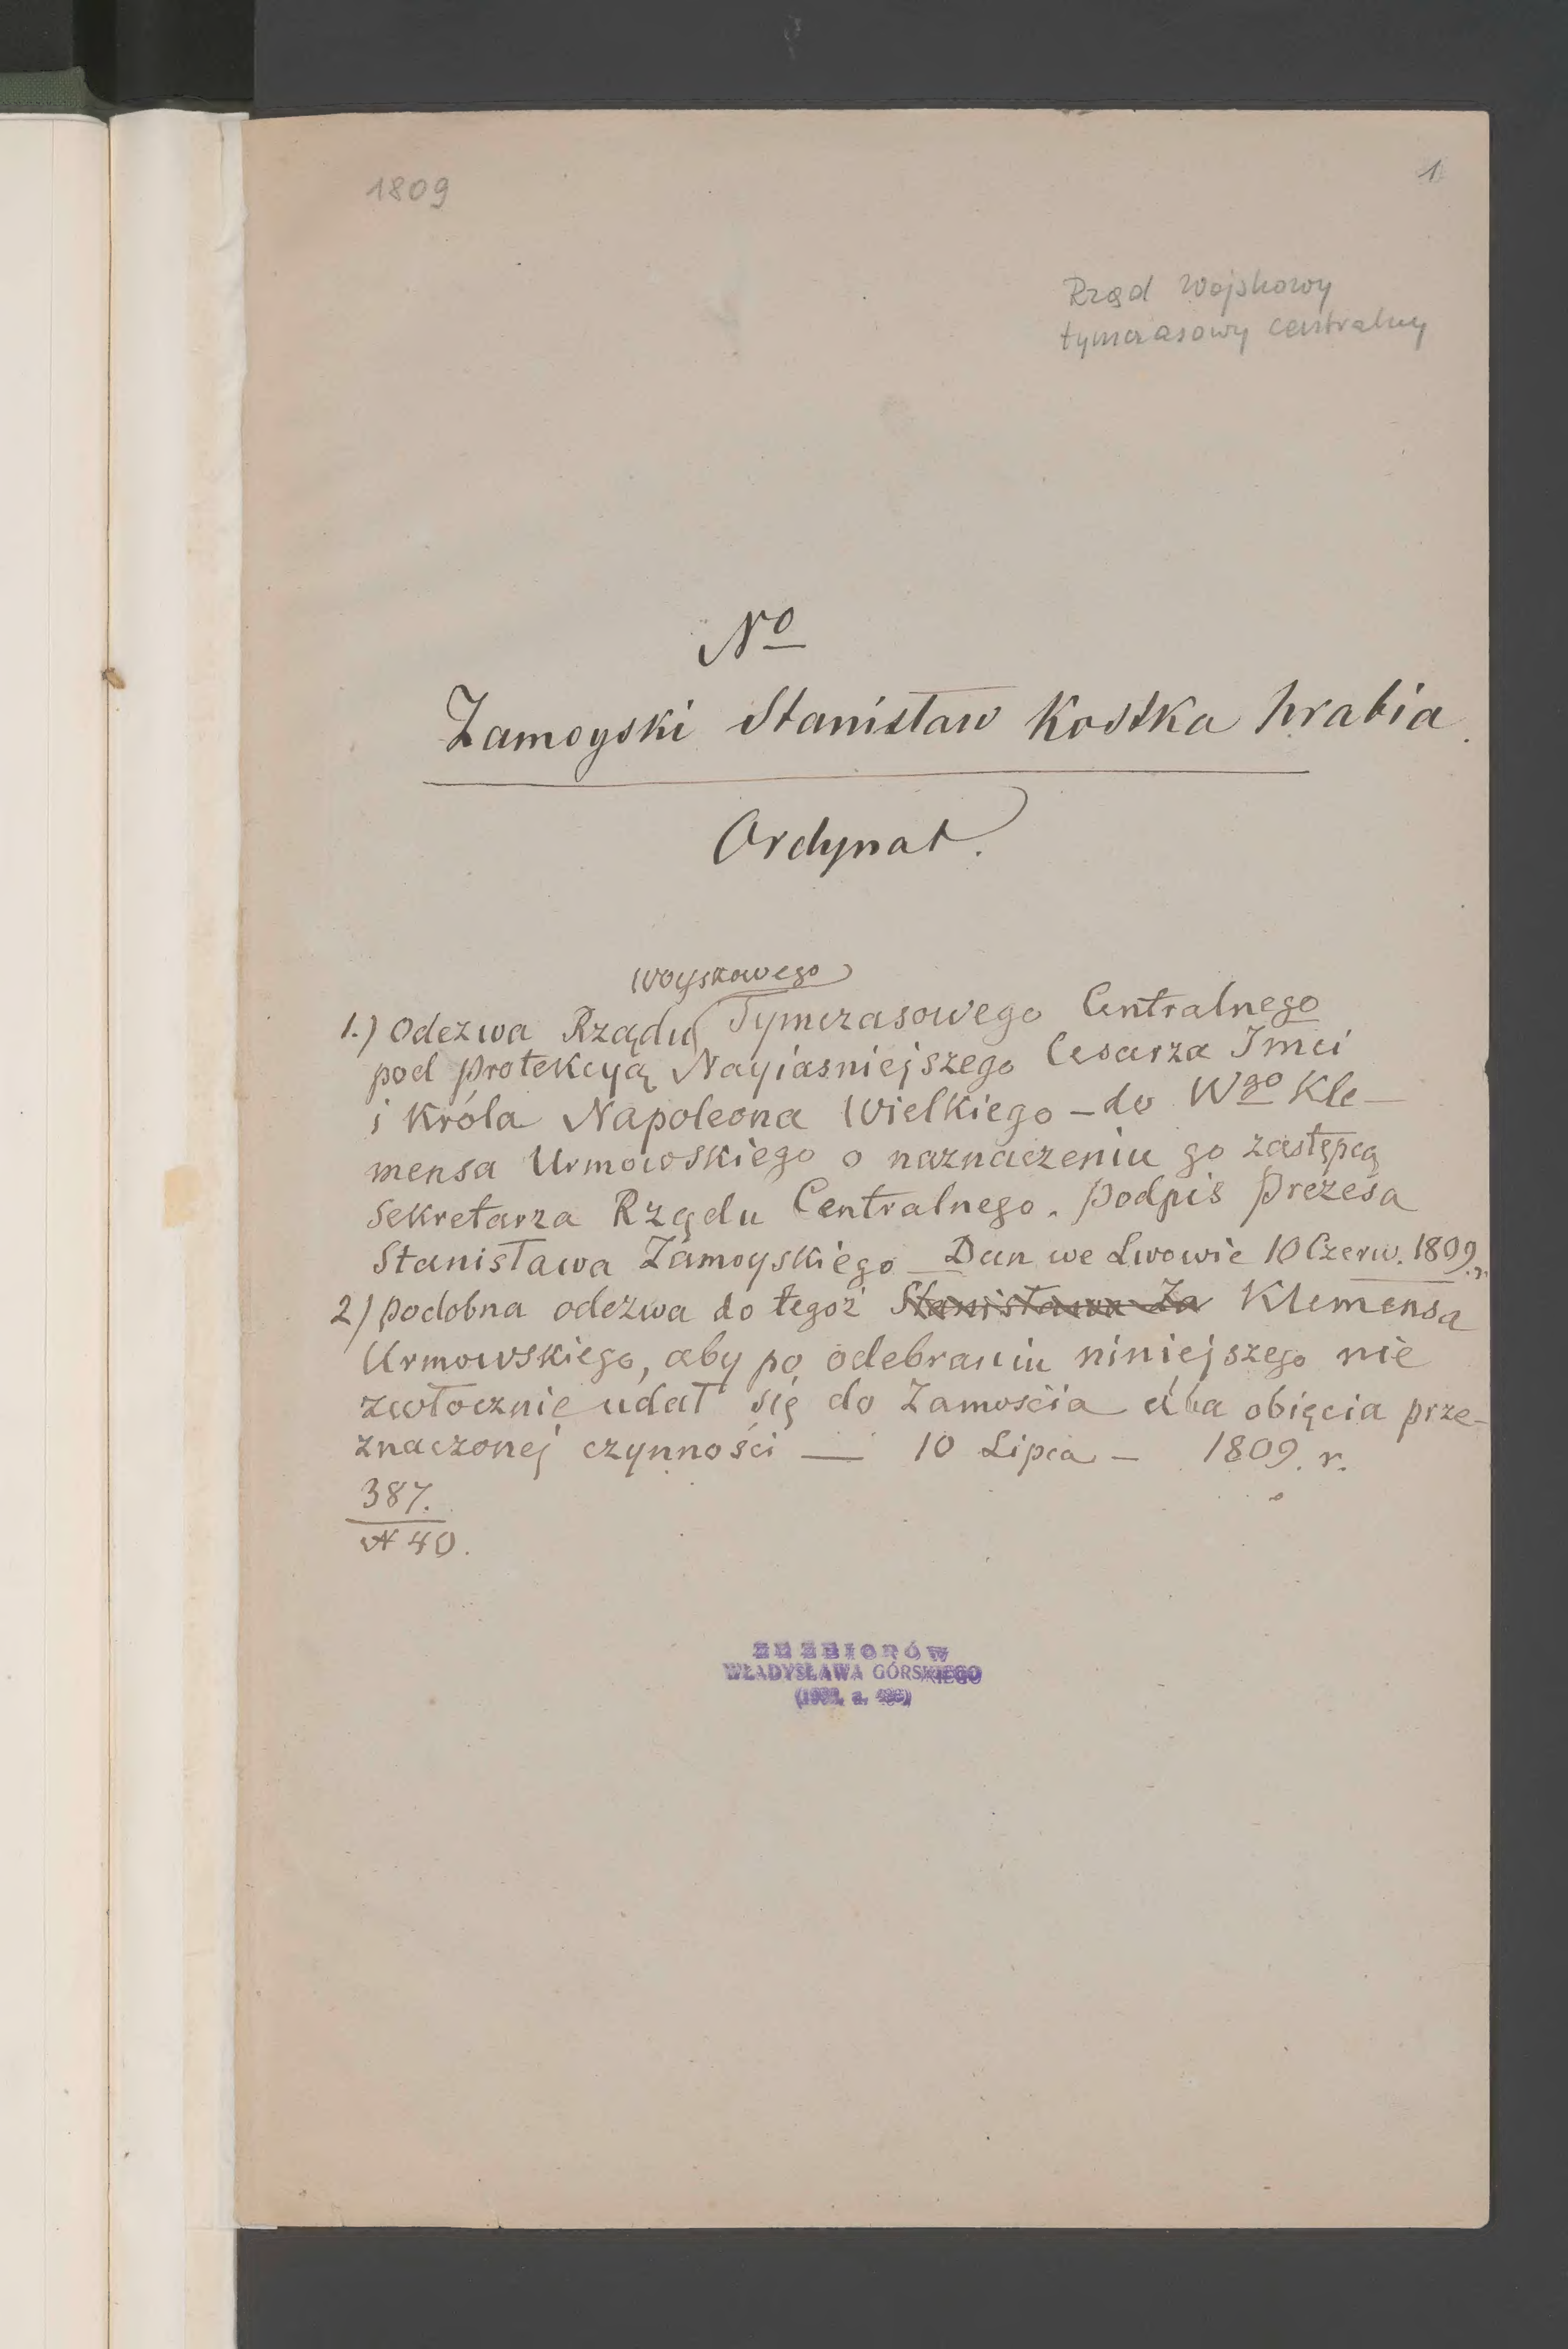 1809
1
Rząd Wojskowy
tymczasowy centralny
No
Zamoyski Stanisław Kostka hrabia.
Ordynat.
Woyskowego
1.) Odezwa Rządu Tymczasowego Centralnego
pod Protekcyą Nayiasniejszego Cesarza Jmci
i Króla Napoleona Wielkiego – do Wgo Kle-
mensa Urmowskiego o naznaczeniu go zastępcą
Sekretarza Rządu Centralnego. Podpis Prezesa
Stanisława Zamoyskiego – Dan we Lwowie 10 Czerw. 1809 r.
2) Podobna odezwa do tegoż Stanisława Za Klemensa
Urmowskiego, aby po odebraniu niniejszego nie
zwłocznie udał się do Zamościa dla obięcia prze-
znaczonej czynności — 10 Lipca – 1809. r.
387.
N 40.
ZE ZBIORÓW
WŁADYSŁAWA GÓRSKIEGO